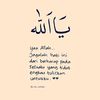 يَا اَللّٰه
Yaa Allah..
Jagalah hati ini
dari berharap pada
sesuatu yang tidak
engkau takdirkan
untukku.